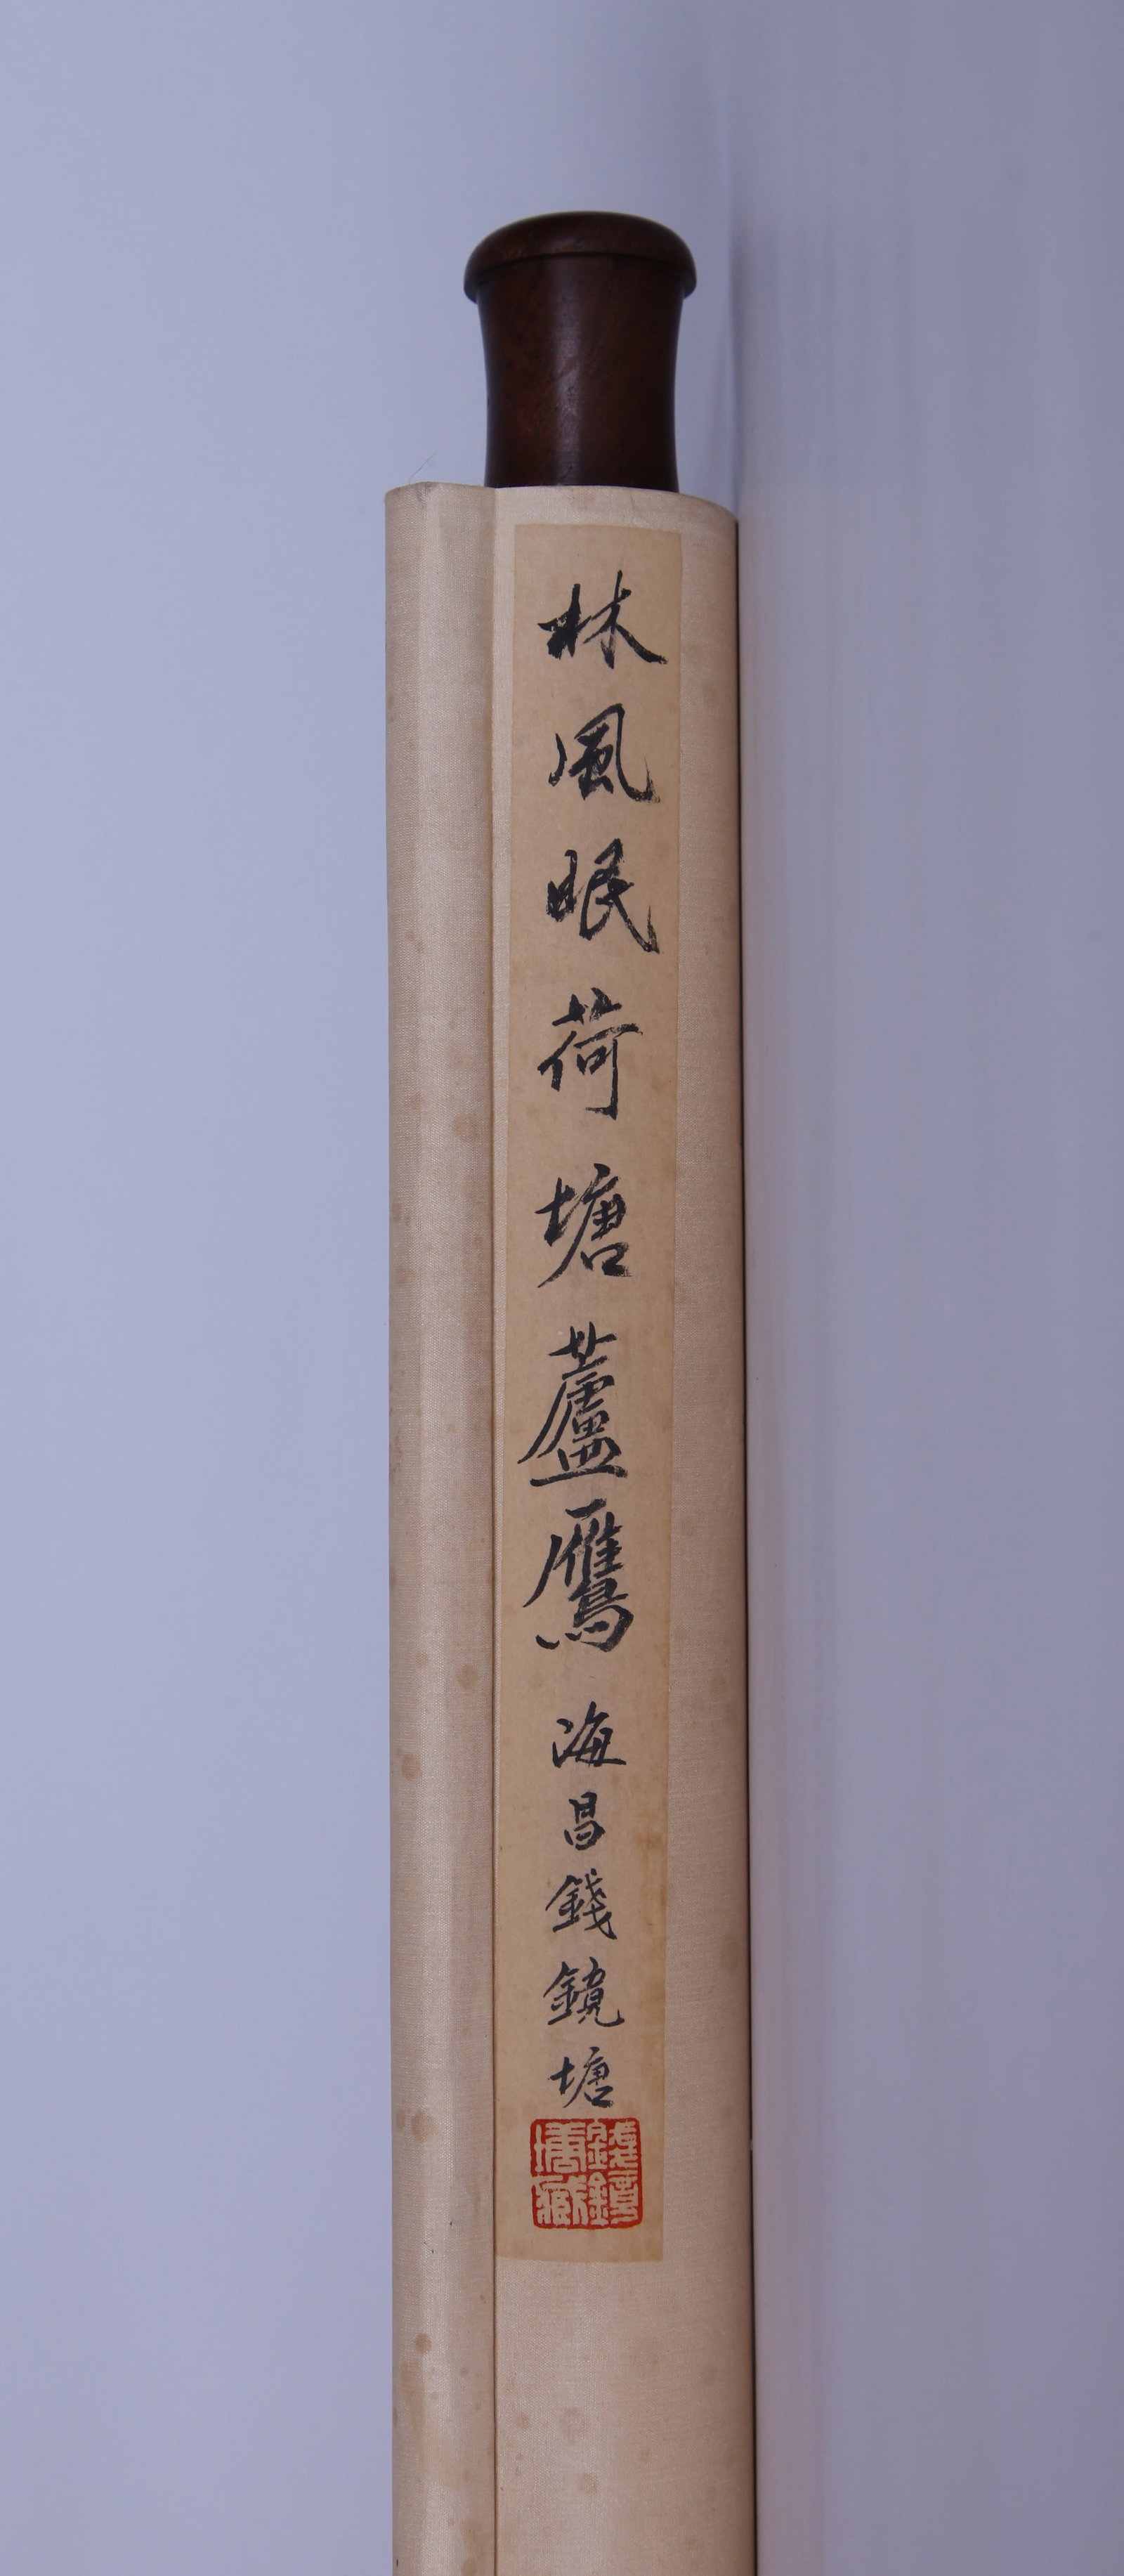 林風眠荷塘蘆鷹海昌錢鏡塘
錢鏡
塘藏